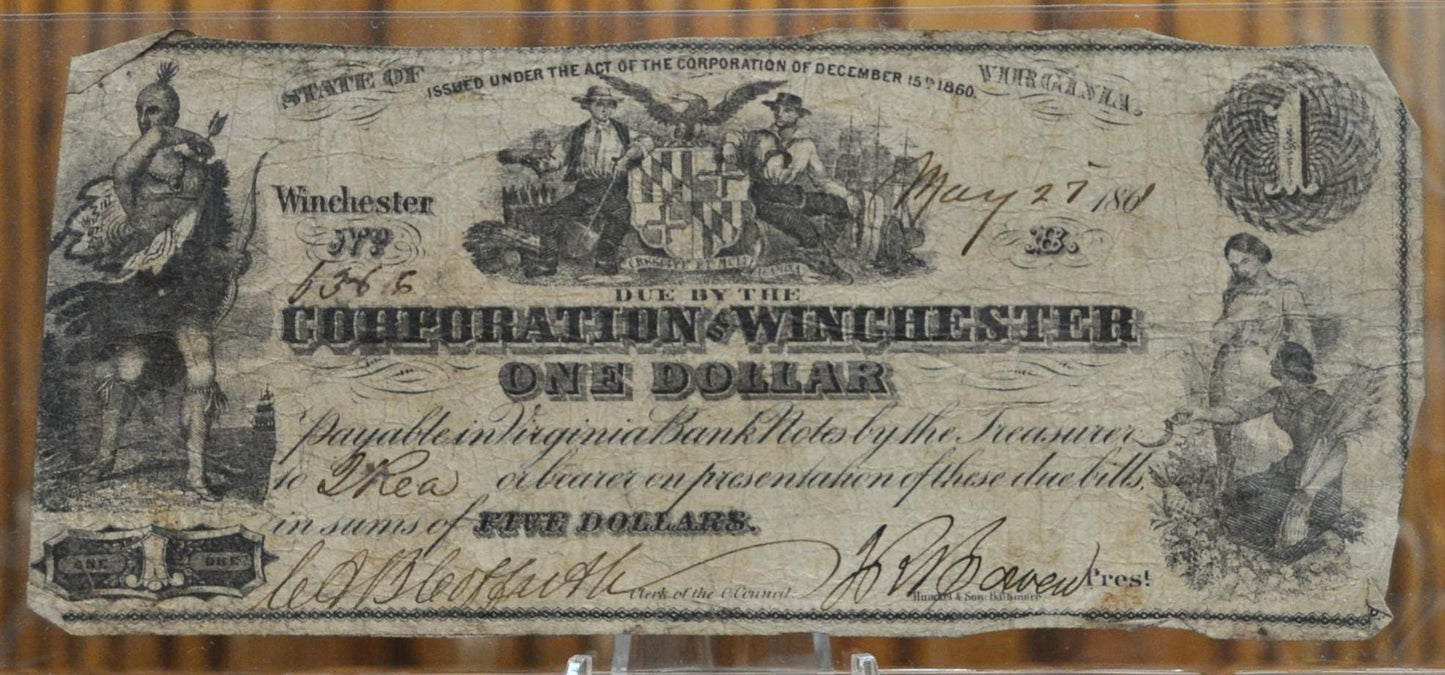 STATE OF ISSUED UNDER THE ACT OF THE CORPORATION OF DECEMBER 15th 1860. VIRGINIA.
1
Winchester May 27 1861
No. B.
DUE BY THE
CORPORATION OF WINCHESTER
ONE DOLLAR
Payable in Virginia Bank Notes by the Treasurer
to T Rea or bearer on presentation of these due bills,
in sums of FIVE DOLLARS.
ONE 1 ONE
Clerk of the C. Council Prest.
& Son Baltimore